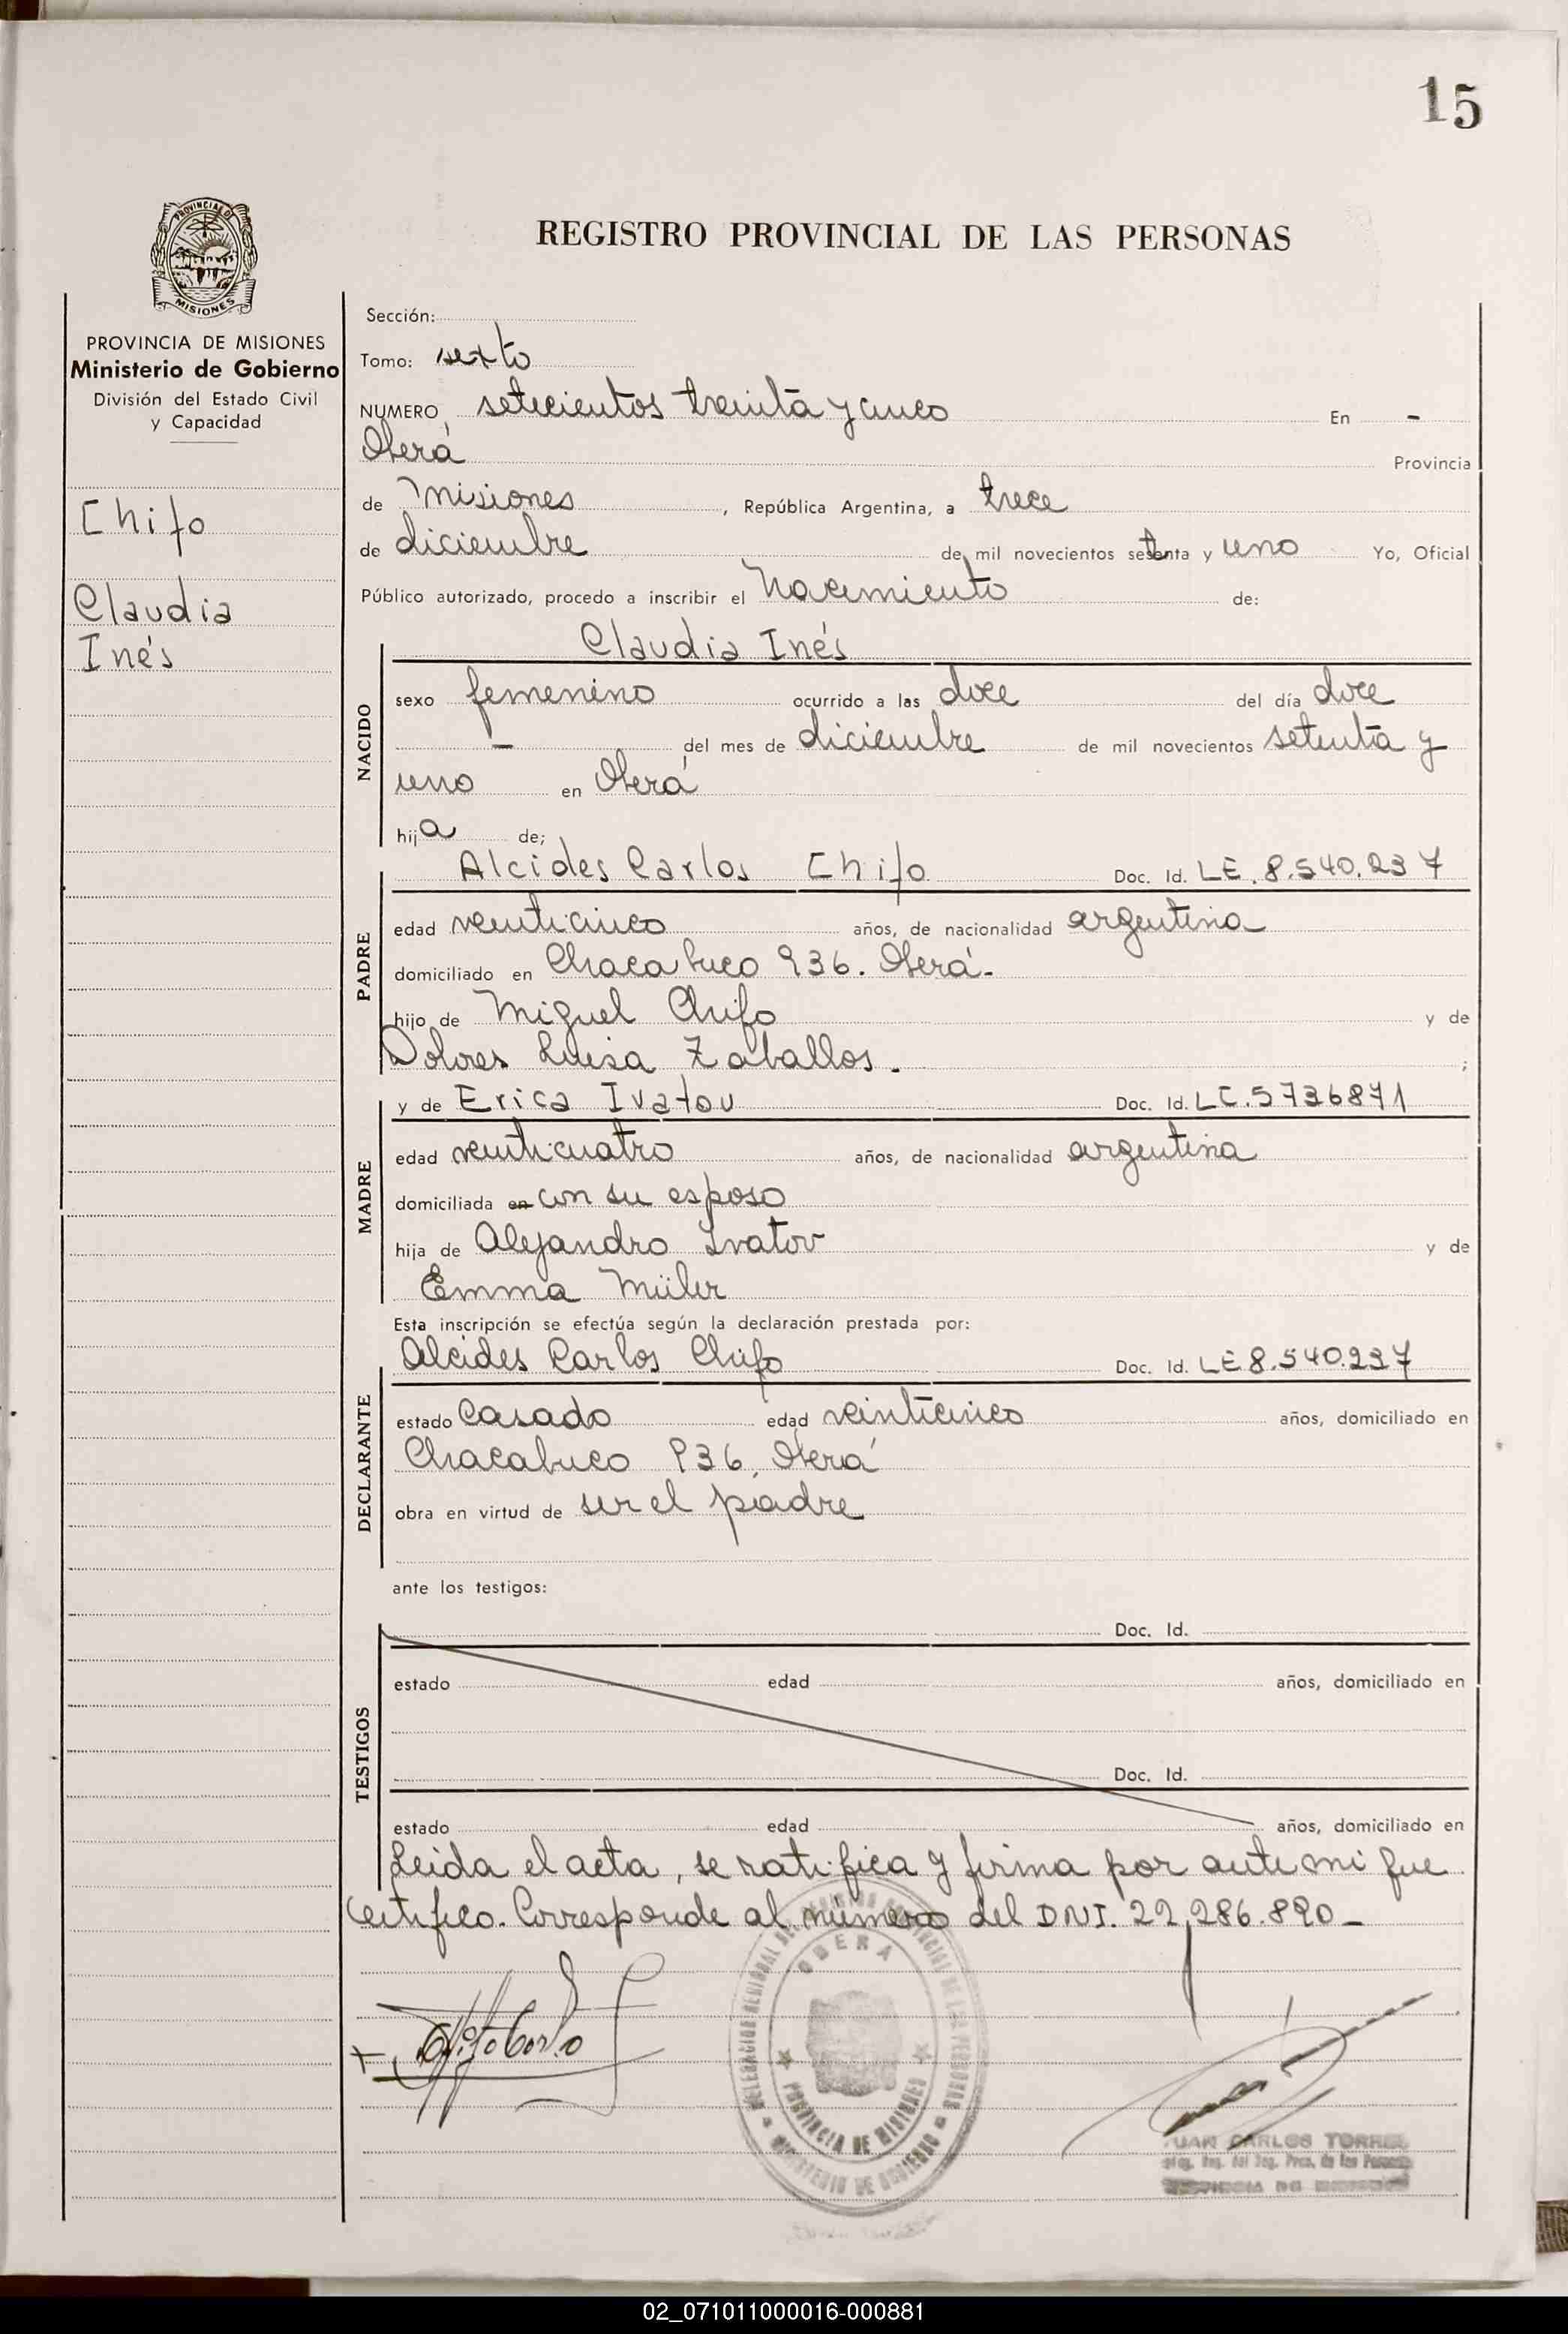 15
REGISTRO PROVINCIAL DE LAS PERSONAS
PROVINCIAL DE
MISIONES
PROVINCIA DE MISIONES
Ministerio de Gobierno
División del Estado Civil
y Capacidad
Chifo
Claudia
Inés
Sección:
Tomo: sexto
NUMERO setecientos treinta y cinco En -
Oberá Provincia
de Misiones, República Argentina, a trece
de diciembre de mil novecientos setenta y uno Yo, Oficial
Público autorizado, procedo a inscribir el Nacimiento de:
Claudia Inés
NACIDO
sexo femenino ocurrido a las doce del día doce
- del mes de diciembre de mil novecientos setenta y
uno en Oberá
hija de;
PADRE
Alcides Carlos Chifo Doc. Id. LE. 8.540.237
edad veinticinco años, de nacionalidad argentina
domiciliado en Chacabuco 936. Oberá-
hijo de Miguel Chifo y de
Dolores Luisa Zaballos. ;
MADRE
y de Erica Ivatov Doc. Id. LC.5736871
edad veinticuatro años, de nacionalidad argentina
domiciliada en con su esposo
hija de Alejandro Ivatov y de
Emma Müler
Esta inscripción se efectúa según la declaración prestada por:
DECLARANTE
Alcides Carlos Chifo Doc. Id. LE 8.540.237
estado casado edad veinticinco años, domiciliado en
Chacabuco 936, Oberá
obra en virtud de ser el padre
ante los testigos:
TESTIGOS
Doc. Id.
estado edad años, domiciliado en
Doc. Id.
estado edad años, domiciliado en
Leida el acta, se ratifica y firma por ante mi que
certifico. Corresponde al número del DNI. 22,286.890-
OBERA
PROVINCIA DE MISIONES
MINISTERIO DE GOBIERNO
JUAN CARLOS TORRES
02_071011000016-000881